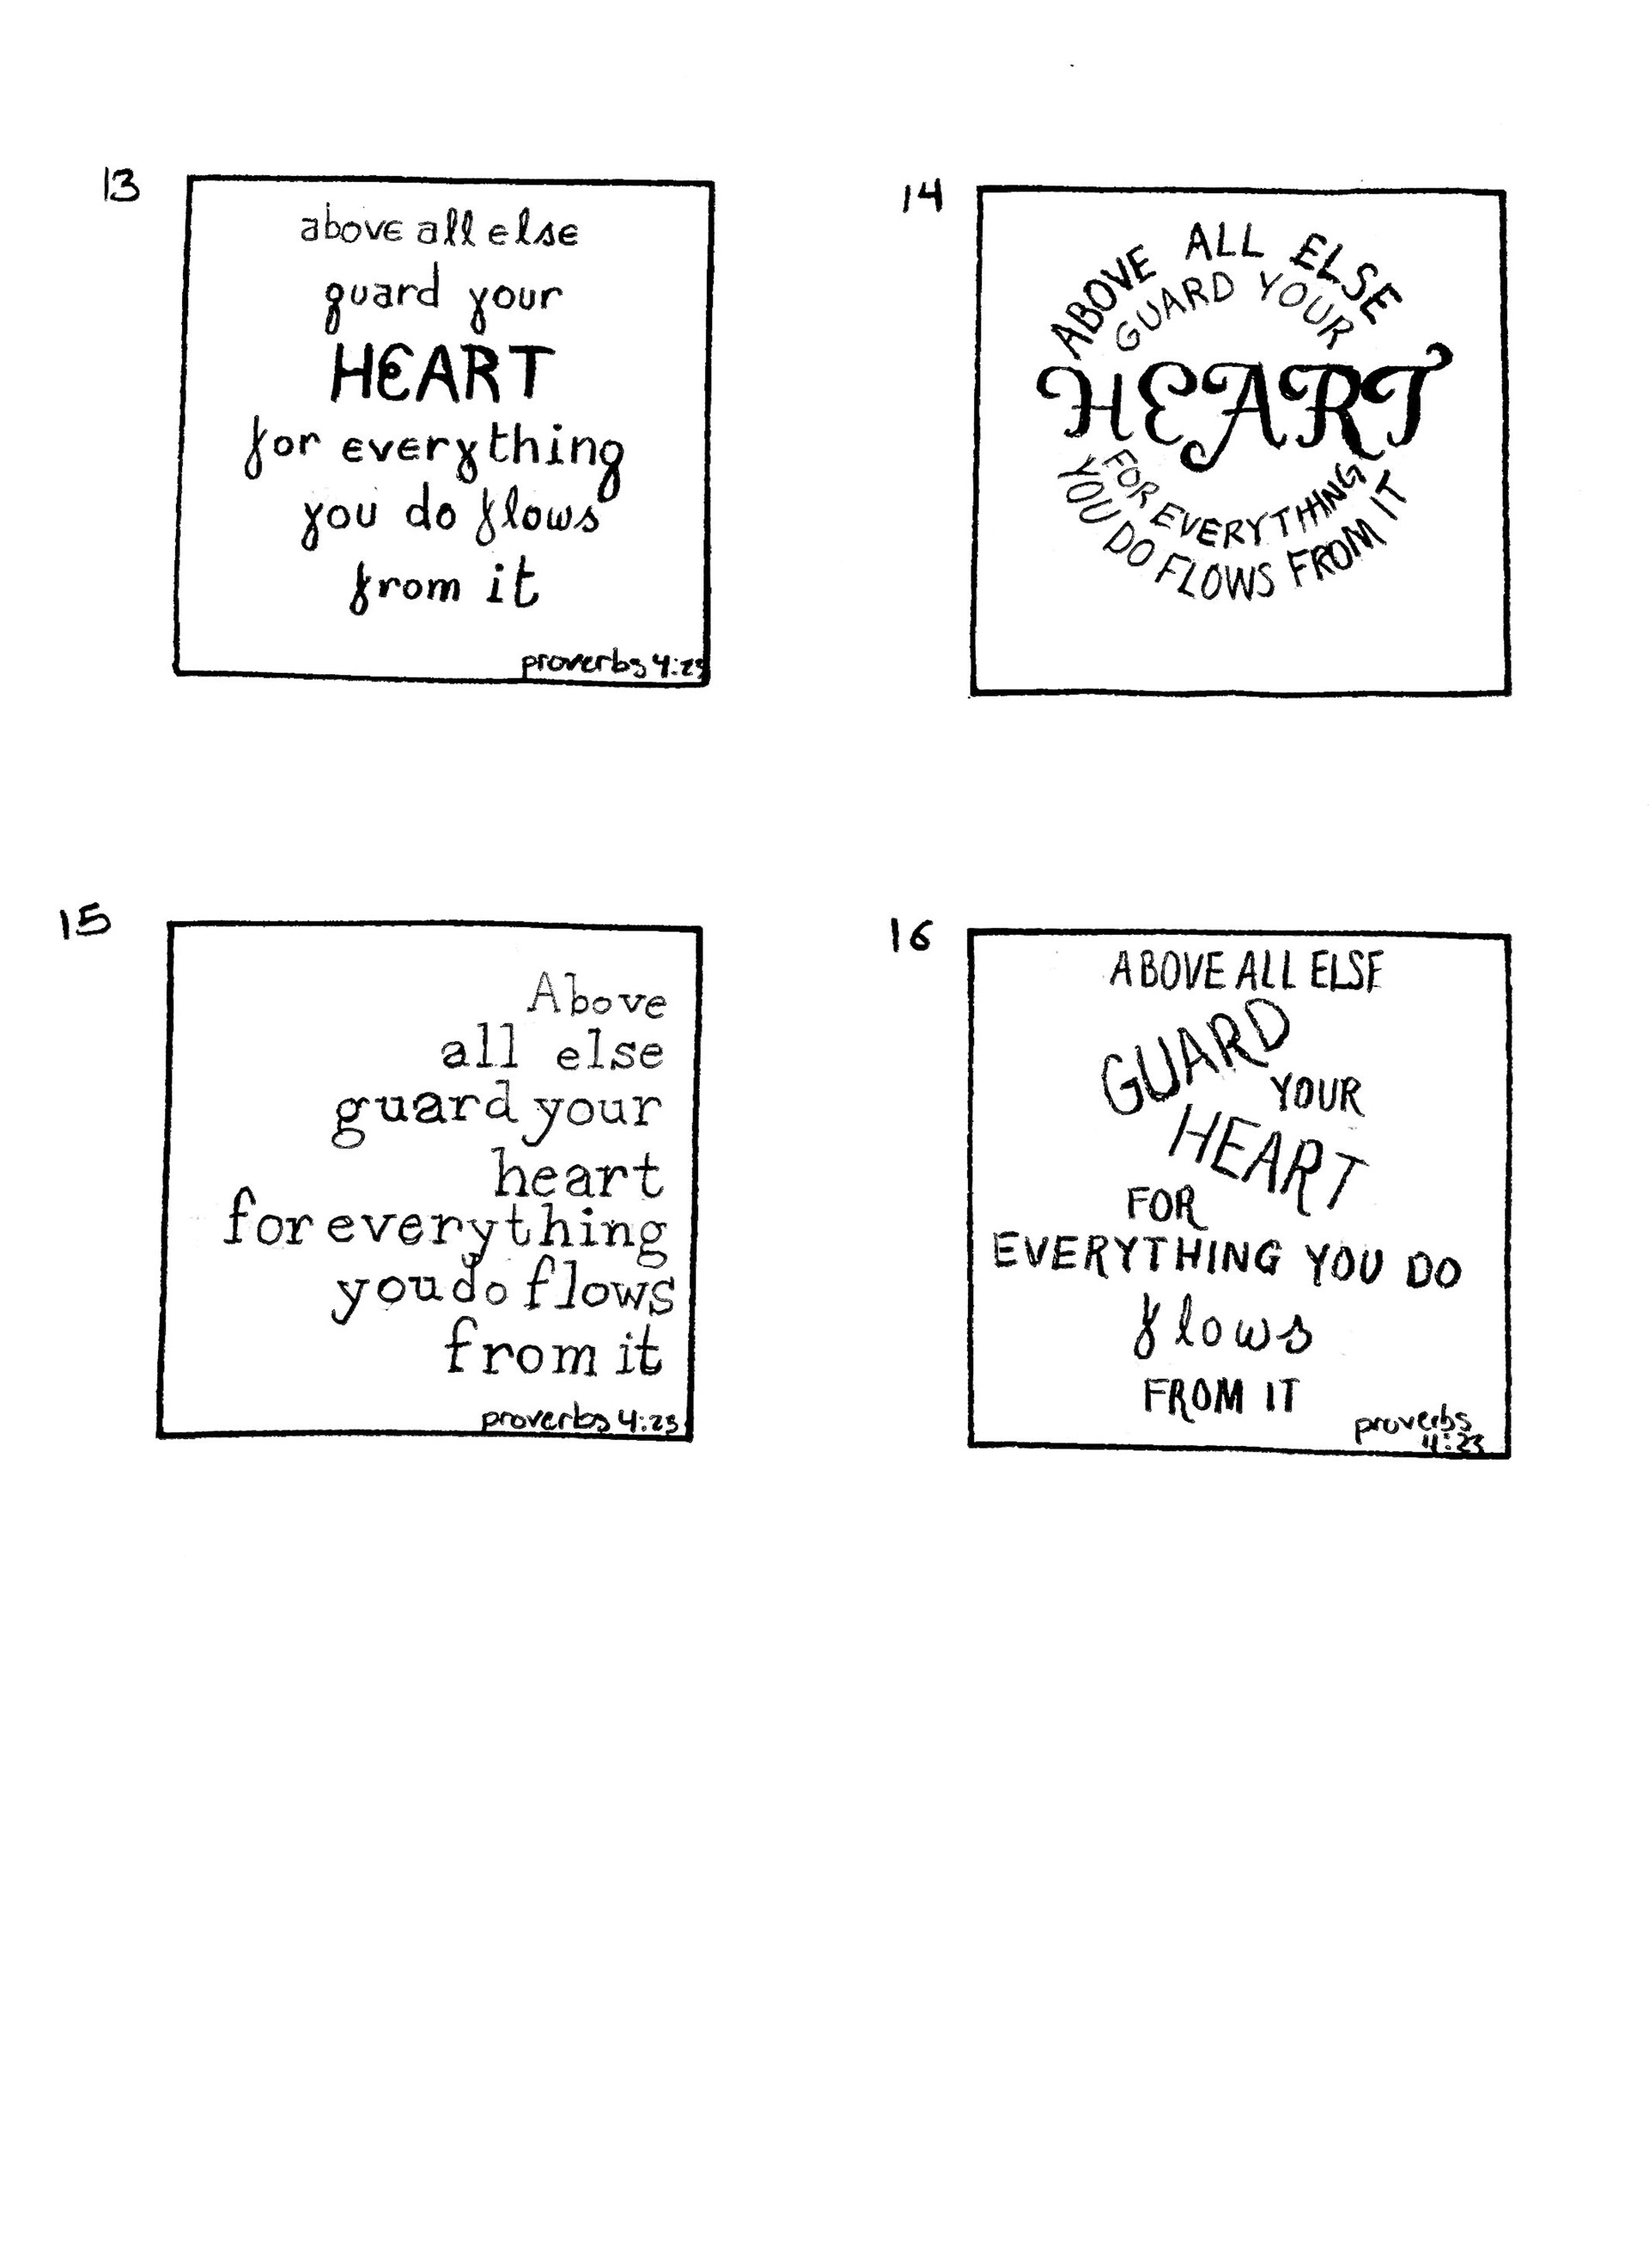 13
above all else
guard your
HEART
for everything
you do flows
from it
proverbs 4:23
14
ABOVE ALL ELSE
GUARD YOUR
HEART
FOR EVERYTHING
YOU DO FLOWS FROM IT
15
Above
all else
guard your
heart
for everything
you do flows
from it
proverbs 4:23
16
ABOVE ALL ELSE
GUARD
YOUR
HEART
FOR
EVERYTHING YOU DO
flows
FROM IT
proverbs
4:23